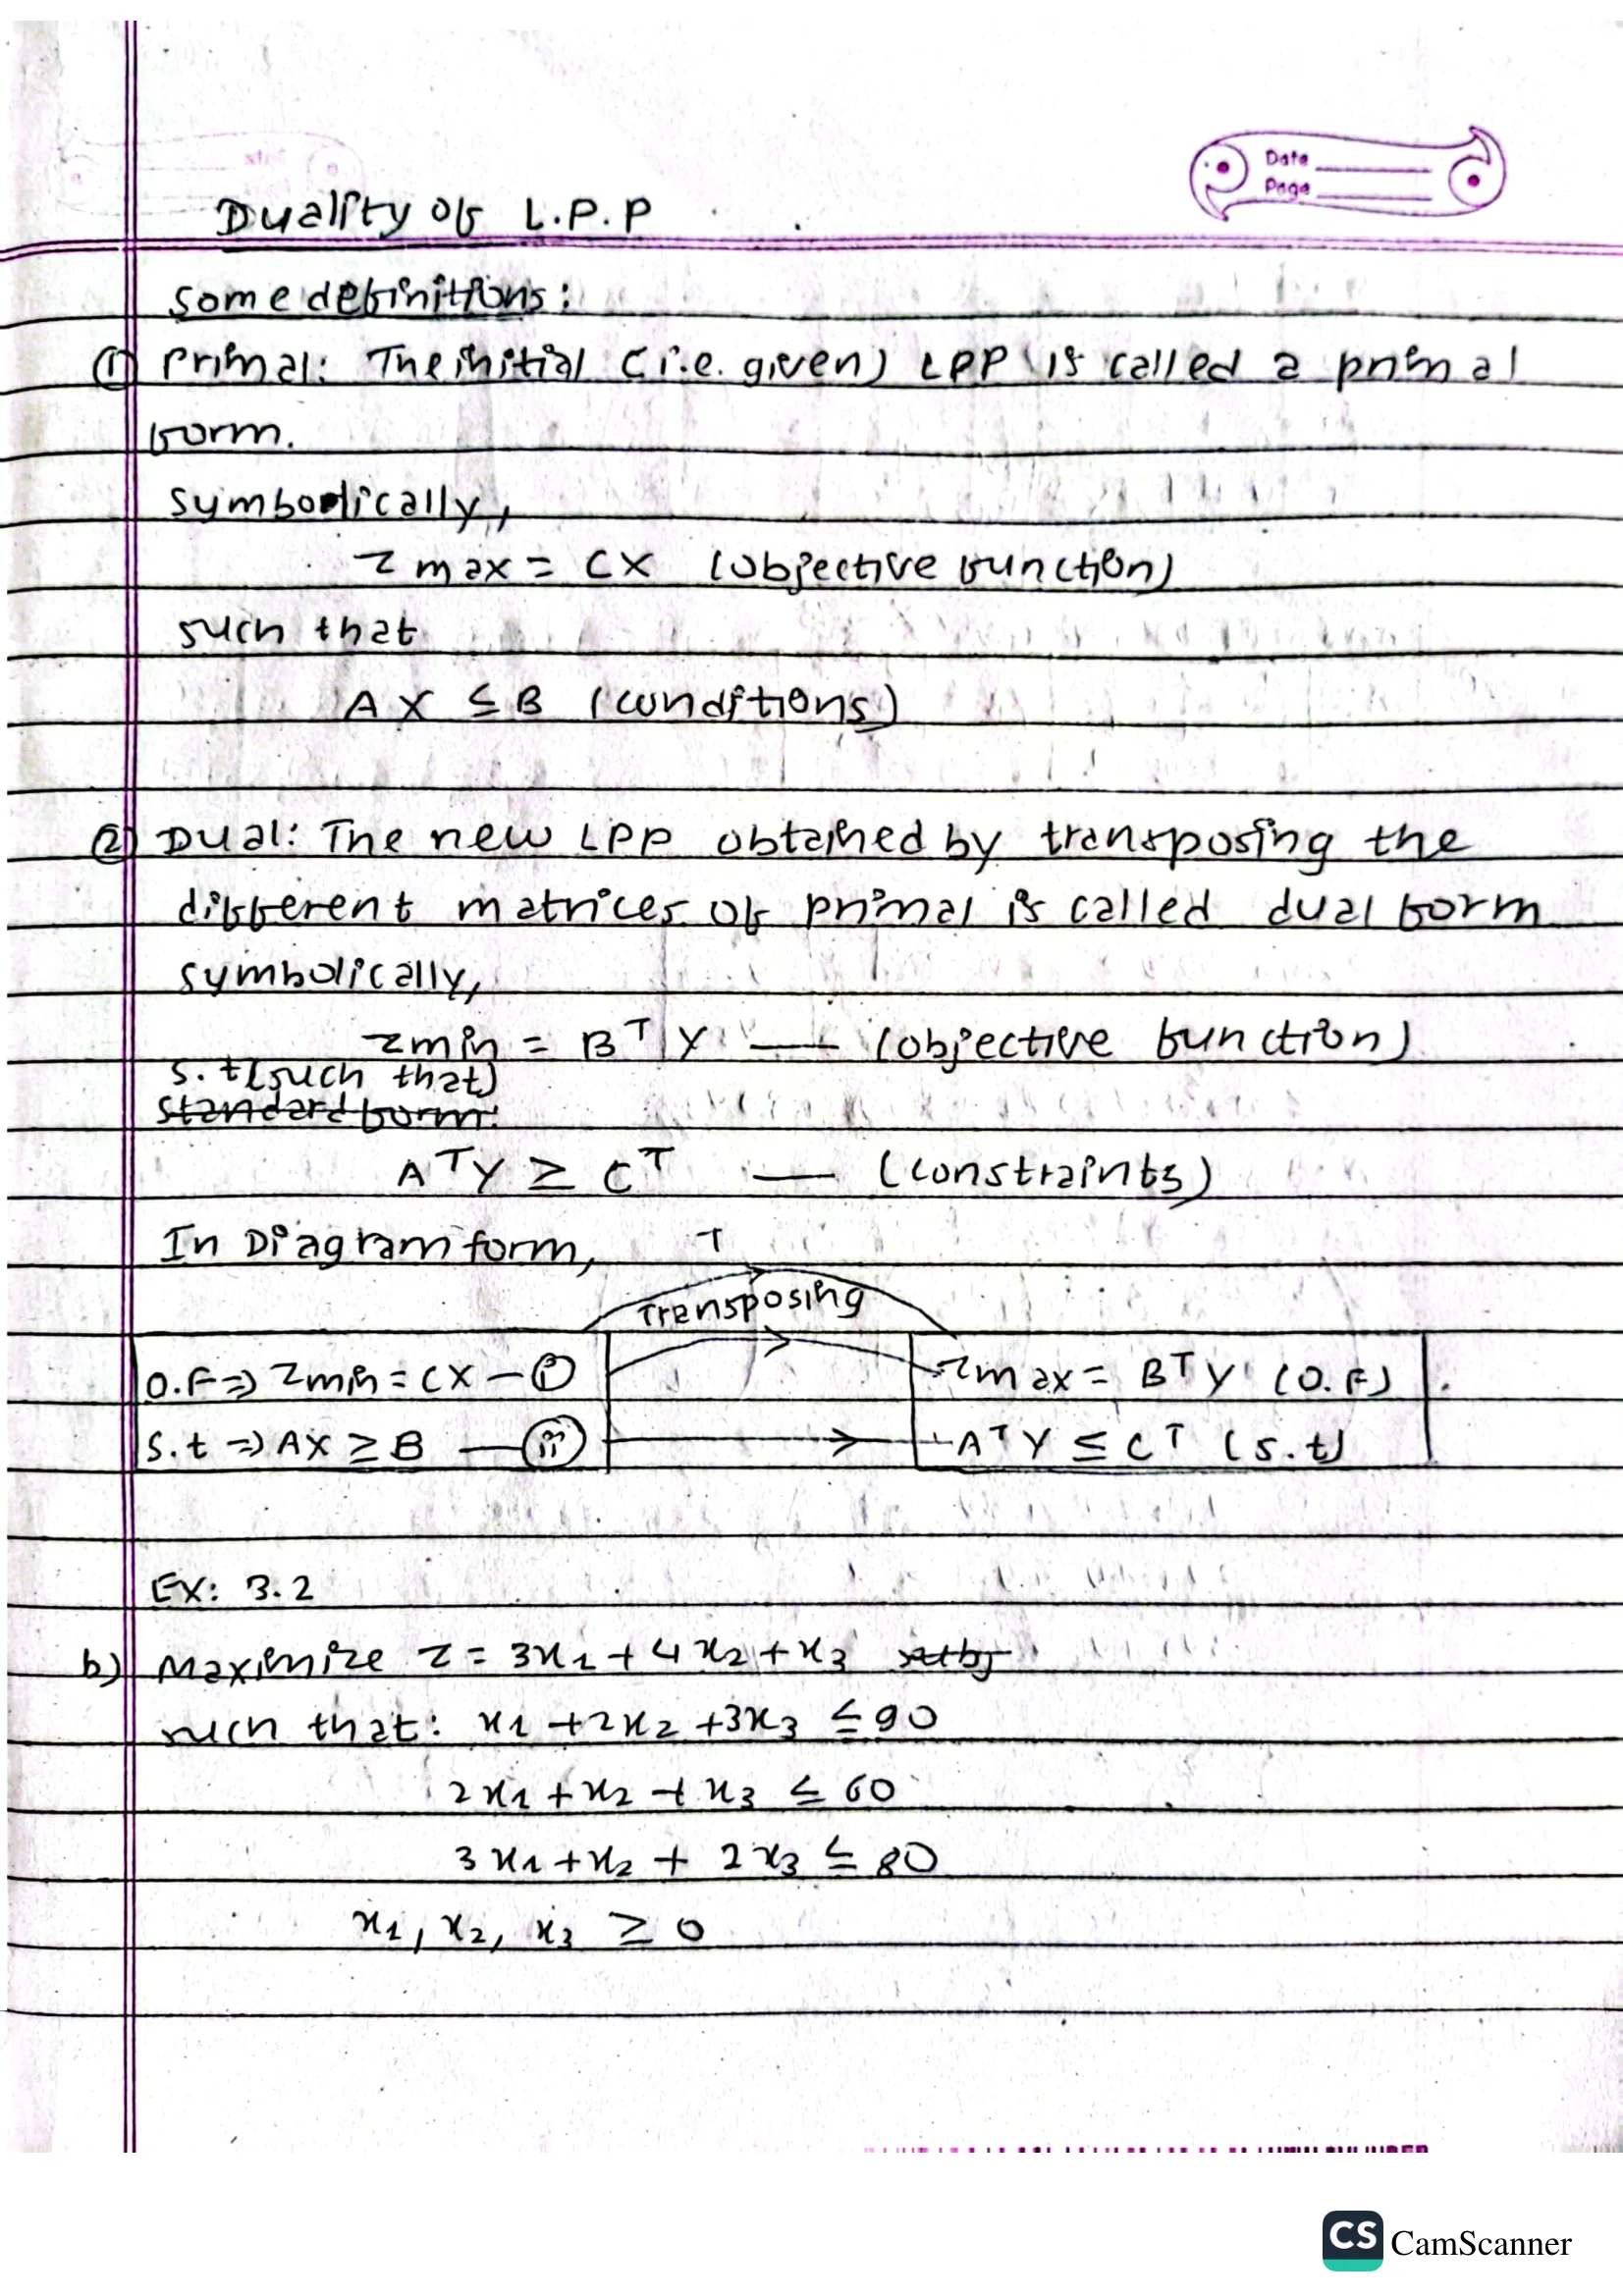 Date
Page
Duality of L.P.P
Some definitions:
① Primal: The initial (i.e. given) LPP is called a primal
form.
symbolically,
Z max = CX (objective function)
such that
AX ≤ B (conditions)
② Dual: The new LPP obtained by transposing the
different matrices of primal is called dual form
symbolically,
Zmin = Bᵀ Y — (objective function)
s.t (such that)
standard form:
AᵀY ≥ Cᵀ — (constraints)
In Diagram form, T
Transposing
O.F ⇒ Zmin = CX — ⓘ Zmax = BᵀY (O.F)
S.t ⇒ AX ≥ B — ⓘⓘ AᵀY ≤ Cᵀ (S.t)
EX: 3.2
b) Maximize Z = 3x₁ + 4x₂ + x₃
such that: x₁ + 2x₂ + 3x₃ ≤ 90
2x₁ + x₂ + x₃ ≤ 60
3x₁ + x₂ + 2x₃ ≤ 80
x₁, x₂, x₃ ≥ 0
CS CamScanner